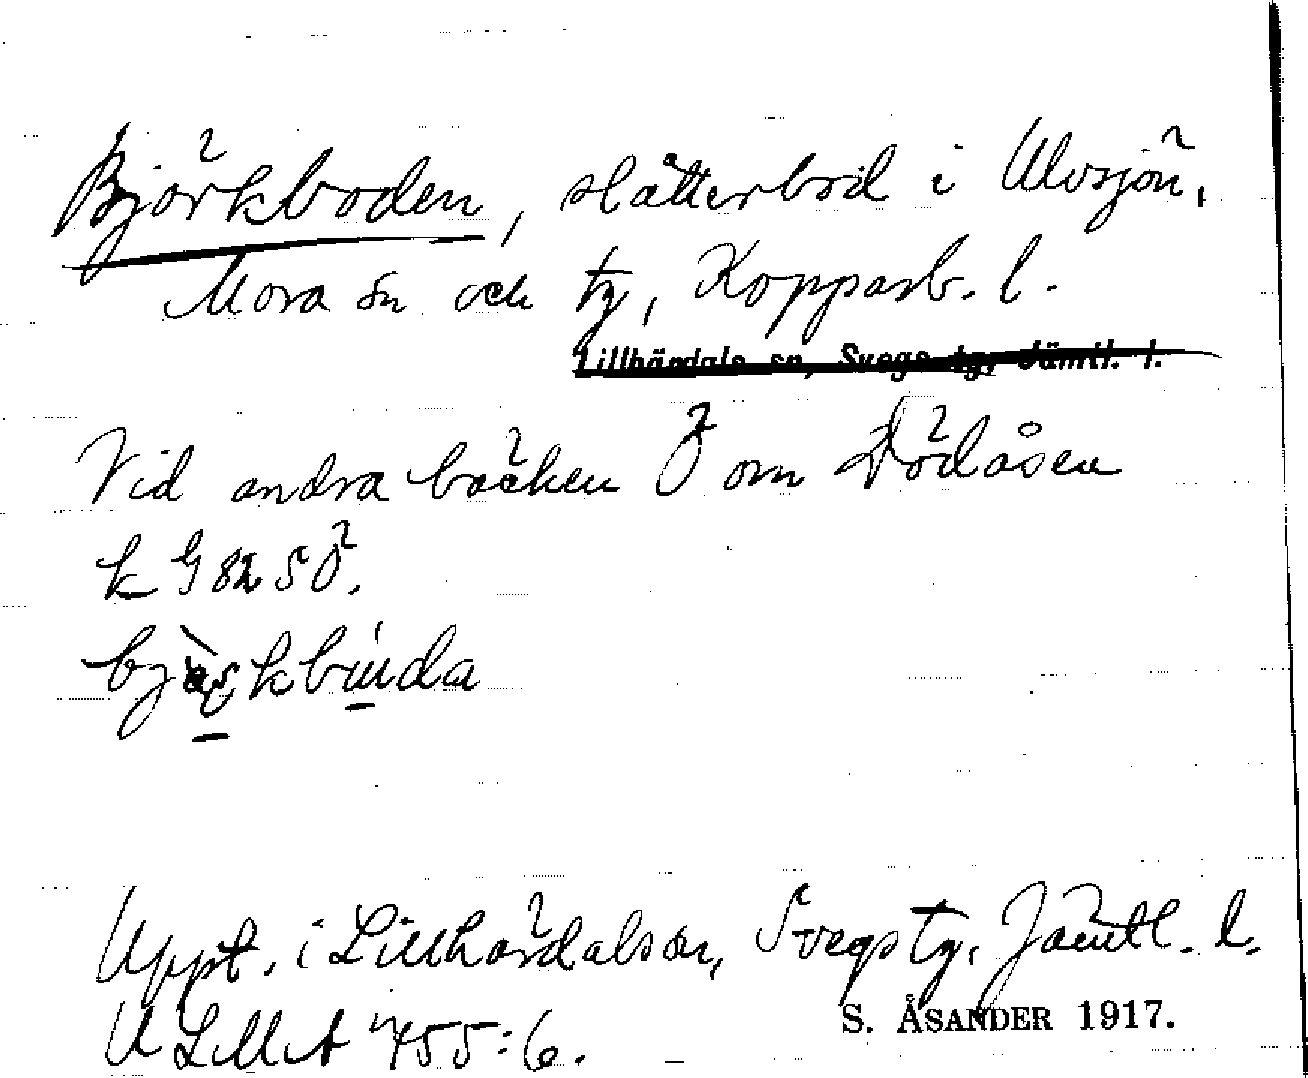 Björkboden, slåtterbod i Ulvsjön,
Mora sn och tg, Kopparb. l.
Lillhärdals sn, Svegs tg, Jämtl. l.
Vid andra bäcken Ö om Dödåsen
k G 82 SÖ.
Uppt. i Lillhärdals sn, Svegs tg, Jämtl. l.
ULMA 455:6.
S. ÅSANDER 1917.